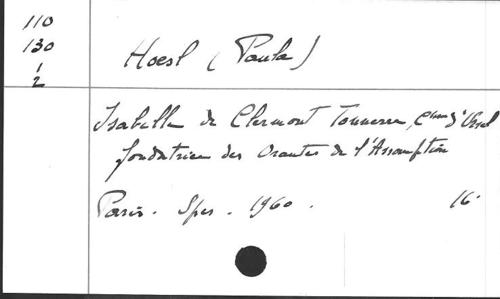 110
130
1
2
Hoesl (Paula)
Isabelle de Clermont Tonnerre, Ctesse d'Ursel
fondatrice des Orantes de l'Assomption
Paris. Spes. 1960. 16°